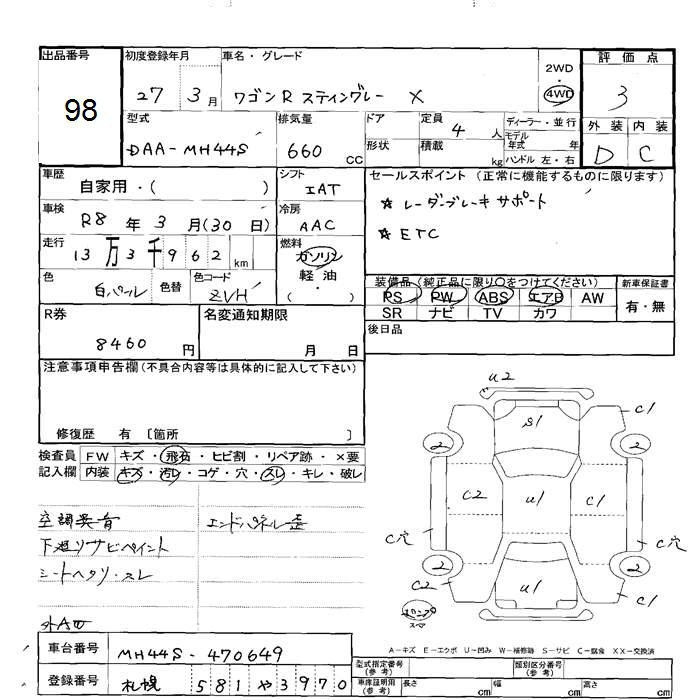 出品番号
98
初度登録年月
27 3月
車名・グレード
ワゴンR スティングレー X
2WD
・
4WD
評価点
3
外装 内装
D C
型式
DAA-MH44S
排気量
660 CC
ドア
形状
定員 4 人
積載 kg
ディーラー・並行
モデル年式 年
ハンドル 左・右
車歴
自家用・( )
シフト
IAT
セールスポイント (正常に機能するものに限ります)
☆ レーダーブレーキサポート
☆ ETC
車検
R8年 3月(30日)
冷房
AAC
走行
13万3千962km
燃料
ガソリン
軽油
( )
色
白パール
色替
色コード
ZVH
装備品(純正品に限り○をつけてください)
PS PW ABS エアB AW
SR ナビ TV カワ
新車保証書
有・無
R券
8460円
名変通知期限
月 日
後日品
注意事項申告欄(不具合内容等は具体的に記入して下さい)
修復歴 有 〔箇所 〕
検査員記入欄
FW キズ・飛石・ヒビ割・リペア跡・×要
内装 キズ・汚レ・コゲ・穴・スレ・キレ・破レ
空調異音
エンドパネル歪
下廻りサビペイント
シートヘタリ・スレ
U2
S1
C1
2
2
C2
U1
C1
C穴
C穴
2
2
C2
U1
C1
スペア
A-キズ E-エクボ U-凹み W-補修跡 S-サビ C-腐食 XX-交換済
車台番号
MH44S-470649
登録番号
札幌 581 や 3970
型式指定番号(参考)
類別区分番号(参考)
車庫証明用(参考)
長さ cm
幅 cm
高さ cm